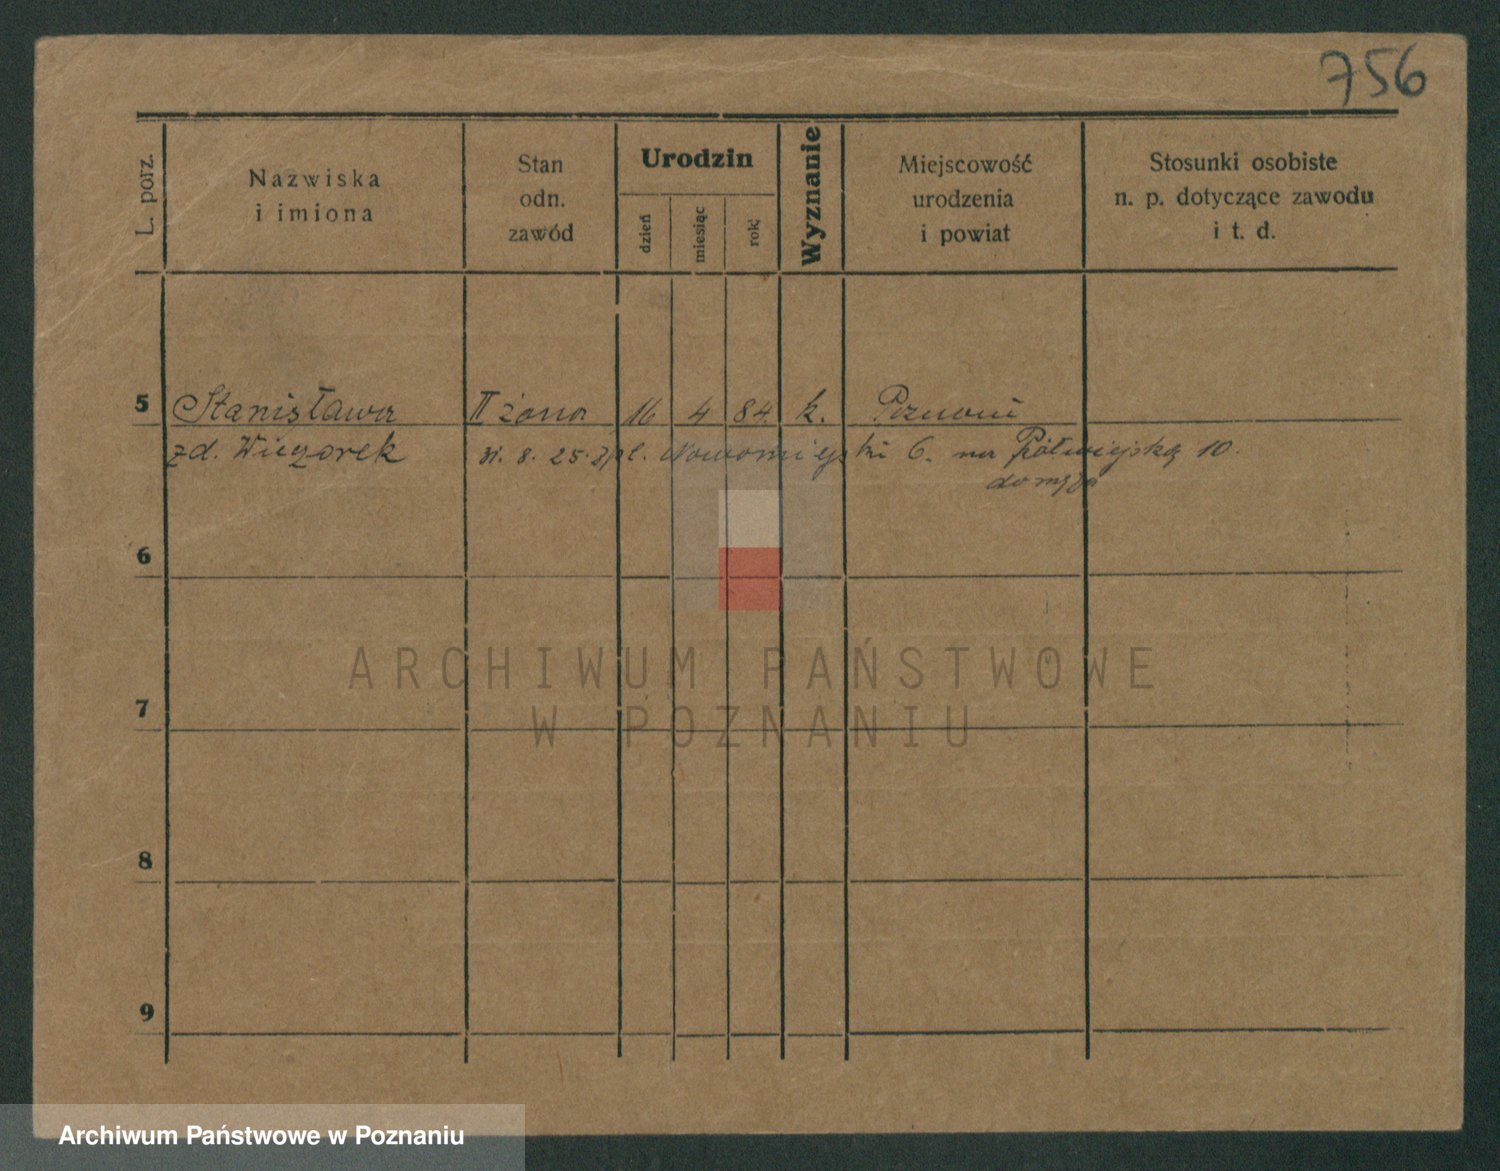 756
L. porz.
Nazwiska
i imiona
Stan
odn.
zawód
Urodzin
dzień
miesiąc
rok
Wyznanie
Miejscowość
urodzenia
i powiat
Stosunki osobiste
n. p. dotyczące zawodu
i t. d.
5 Stanisława II żona 16 4 84. k. Poznań
zd. Wieczorek 31. 8. 25. z pl. Nowomiejski 6. na Półwiejską 10.
do męża
6
ARCHIWUM PAŃSTWOWE
7
W POZNANIU
8
9
Archiwum Państwowe w Poznaniu